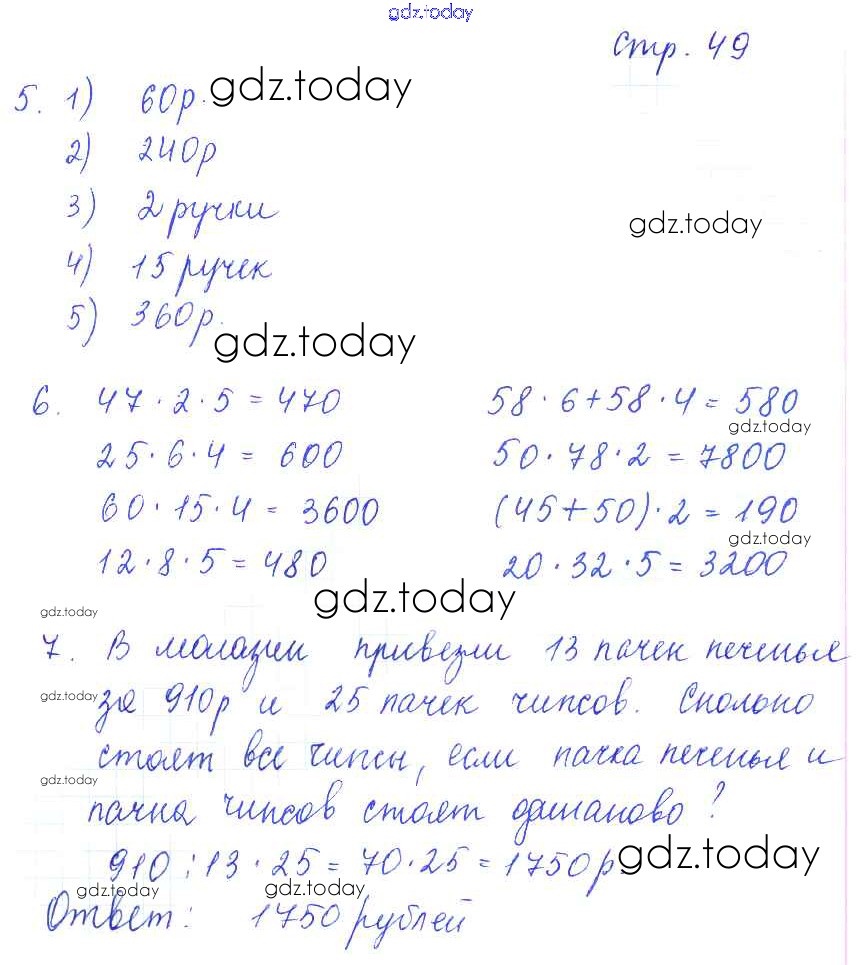 gdz.today
стр. 49
5. 1) 60р. gdz.today
2) 240р
3) 2 ручки
gdz.today
4) 15 ручек
5) 360р.
gdz.today
6. 47 · 2 · 5 = 470 58 · 6 + 58 · 4 = 580
gdz.today
25 · 6 · 4 = 600 50 · 78 · 2 = 7800
60 · 15 · 4 = 3600 (45 + 50) · 2 = 190
gdz.today
12 · 8 · 5 = 480 20 · 32 · 5 = 3200
gdz.today
gdz.today
7. В магазин привезли 13 пачек печенья
gdz.today за 910р и 25 пачек чипсов. Сколько
стоят все чипсы, если пачка печенья и
gdz.today
пачка чипсов стоят одинаково?
910 : 13 · 25 = 70 · 25 = 1750 р gdz.today
gdz.today gdz.today
Ответ: 1750 рублей